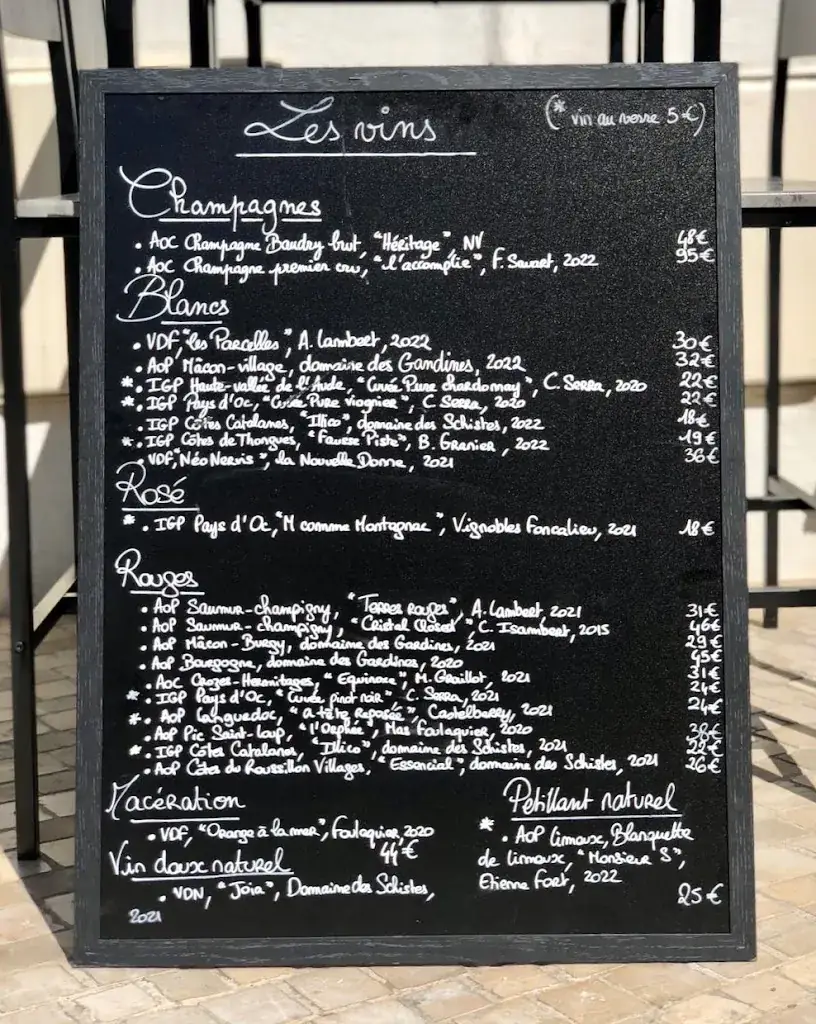 Les vins
(* vin au verre 5€)
Champagnes
• AOC Champagne Baudry brut, "Héritage", NV 48€
• AOC Champagne premier cru, "l'accomplie", F. Savart, 2022 95€
Blancs
• VDF, "les Parcelles", A. Lambert, 2022 30€
• AOP Mâcon-village, domaine des Gandines, 2022 32€
* • IGP Haute-vallée de l'Aude, "Cuvée Pure chardonnay", C. Serra, 2020 22€
* • IGP Pays d'Oc, "Cuvée Pure viognier", C. Serra, 2020 22€
• IGP Côtes Catalanes, "Illico", domaine des Schistes, 2022 18€
* • IGP Côtes de Thongues, "Fausse Piste", B. Granier, 2022 19€
• VDF, "Néo Nervis", la Nouvelle Donne, 2021 36€
Rosé
* • IGP Pays d'Oc, "M comme Montagnac", Vignobles Foncalieu, 2021 18€
Rouges
• AOP Saumur-champigny, "Terres rouges", A. Lambert, 2021 31€
• AOP Saumur-champigny, "Cristal Closed", C. Isambert, 2015 46€
• AOP Mâcon-Burgy, domaine des Gandines, 2021 29€
• AOP Bourgogne, domaine des Gandines, 2020 45€
• AOC Crozes-Hermitages, "Equinoxe", M. Graillot, 2021 31€
* • IGP Pays d'Oc, "Cuvée pinot noir", C. Serra, 2021 24€
* • AOP Languedoc, "a tête reposée", Castelbarry, 2021 24€
• AOP Pic Saint-Loup, "l'Orphée", Mas Foulaquier, 2020 38€
* • IGP Côtes Catalanes, "Illico", domaine des Schistes, 2021 22€
• AOP Côtes du Roussillon Villages, "Essencial", domaine des Schistes, 2021 26€
Macération
• VDF, "Orange à la mer", Foulaquier, 2020
44€
Vin doux naturel
• VDN, "Joia", Domaine des Schistes,
2021
Petillant naturel
* • AOP Limoux, Blanquette
de Limoux, "Monsieur S",
Etienne Fort, 2022
25€